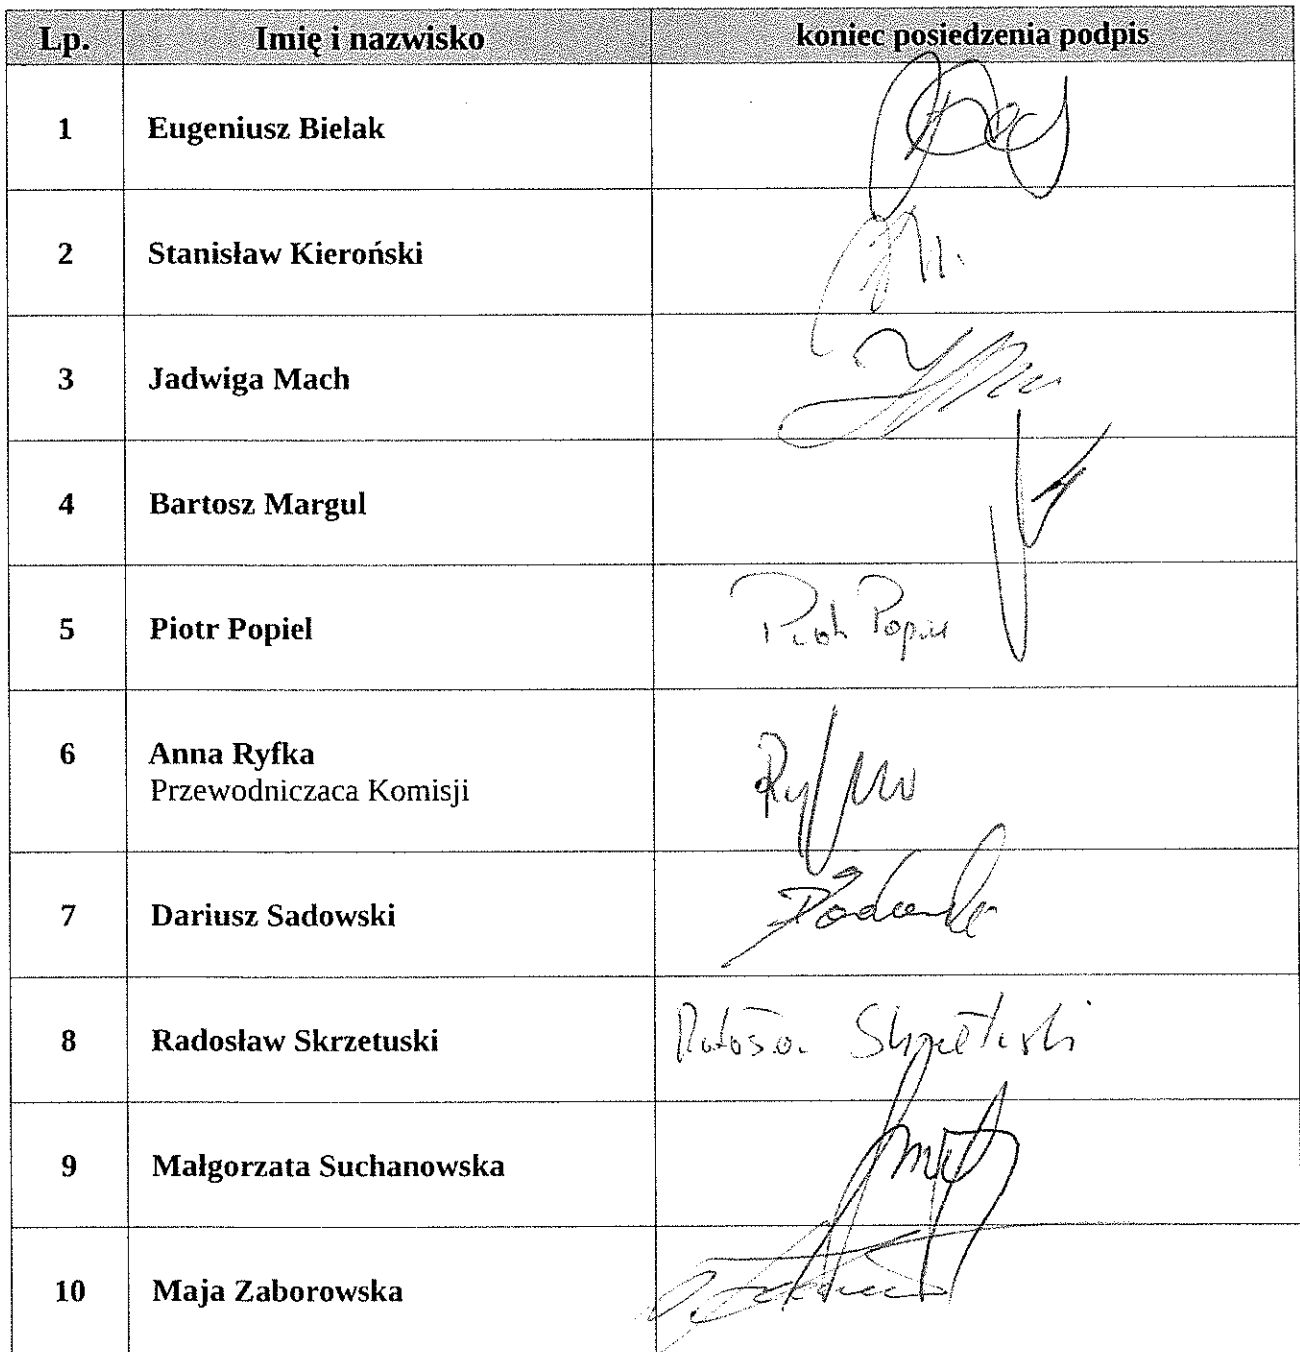 Lp. Imię i nazwisko koniec posiedzenia podpis
1 Eugeniusz Bielak
2 Stanisław Kieroński
3 Jadwiga Mach
4 Bartosz Margul
5 Piotr Popiel Piotr Popiel
6 Anna Ryfka
Przewodniczaca Komisji
7 Dariusz Sadowski
8 Radosław Skrzetuski
9 Małgorzata Suchanowska
10 Maja Zaborowska